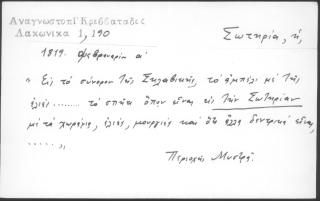 Ἀναγνωστοπ. Κρεββαταδες
Λακωνικα 1, 190
Σωτηρία, ἡ,
1819. Φεβρουαρίου α'
"Εἰς τὸ σύνορον τῆς Σκλαβικῆς, τὸ ἀμπέλι μὲ τῆς
ἐλιές ......... τὸ σπίτι ὅπου εἶναι εἰς τὴν Σωτηρίαν
μὲ τὰ χωράφια, ἐλιές, μουργιές καὶ ὅτι ἄλλα δεντρικά εἶναι,
......"
Περιοχῆς Μυστρᾶ.